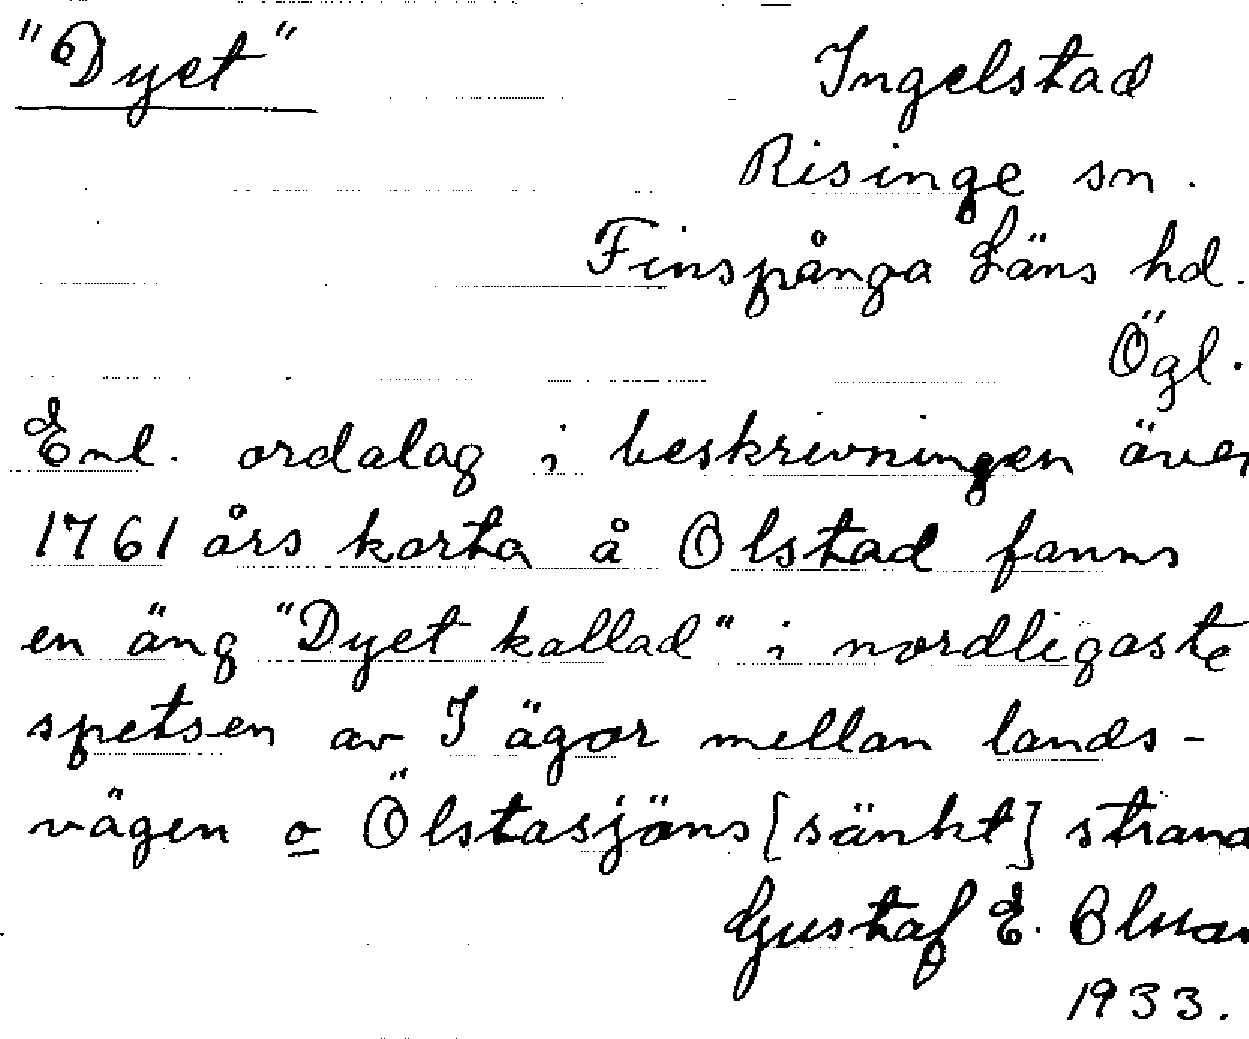 "Dyet"
Ingelstad
Risinge sn.
Finspånga Läns hd.
Ögl.
Enl. ordalag i beskrivningen över
1761 års karta å Olstad fanns
en äng "Dyet kallad" i nordligaste
spetsen av I ägor mellan lands-
vägen o Ölstasjöns [sänkt] strand
Gustaf E. Olsson
1933.